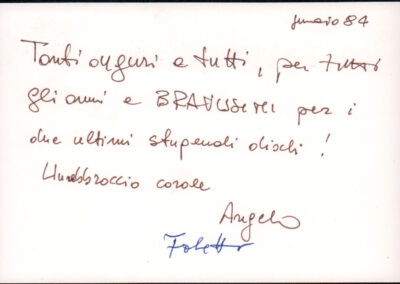 gennaio 84
Tanti auguri a tutti, per tutti
gli anni e BRAVISSIMI per i
due ultimi stupendi dischi!
Un abbraccio corale
Angelo
Foletto